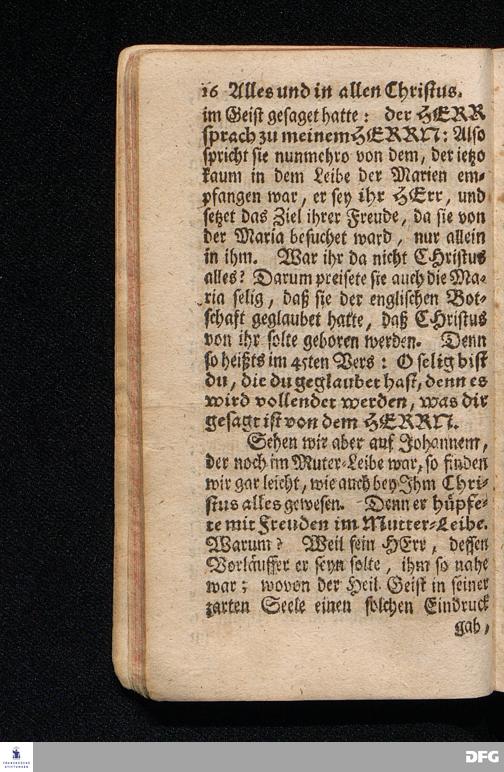 16 Alles und in allen Christus.
im Geist gesaget hatte: der HERR
sprach zu meinem HERRN: Also
spricht sie nunmehro von dem, der ietzo
kaum in dem Leibe der Marien em-
pfangen war, er sey ihr HErr, und
setzet das Ziel ihrer Freude, da sie von
der Maria besuchet ward, nur allein
in ihm. War ihr da nicht CHristus
alles? Darum preisete sie auch die Ma-
ria selig, daß sie der englischen Bot-
schaft geglaubet hatte, daß CHristus
von ihr solte geboren werden. Denn
so heißts im 45ten Vers: O selig bist
du, die du geglaubet hast, denn es
wird vollendet werden, was dir
gesagt ist von dem HERRN.
Sehen wir aber auf Johannem,
der noch im Muter-Leibe war, so finden
wir gar leicht, wie auch bey Ihm Chri-
stus alles gewesen. Denn er hüpfe-
te mit Freuden im Mutter-Leibe.
Warum? Weil sein HErr, dessen
Vorläuffer er seyn solte, ihm so nahe
war; wovon der Heil. Geist in seiner
zarten Seele einen solchen Eindruck
gab,
DFG